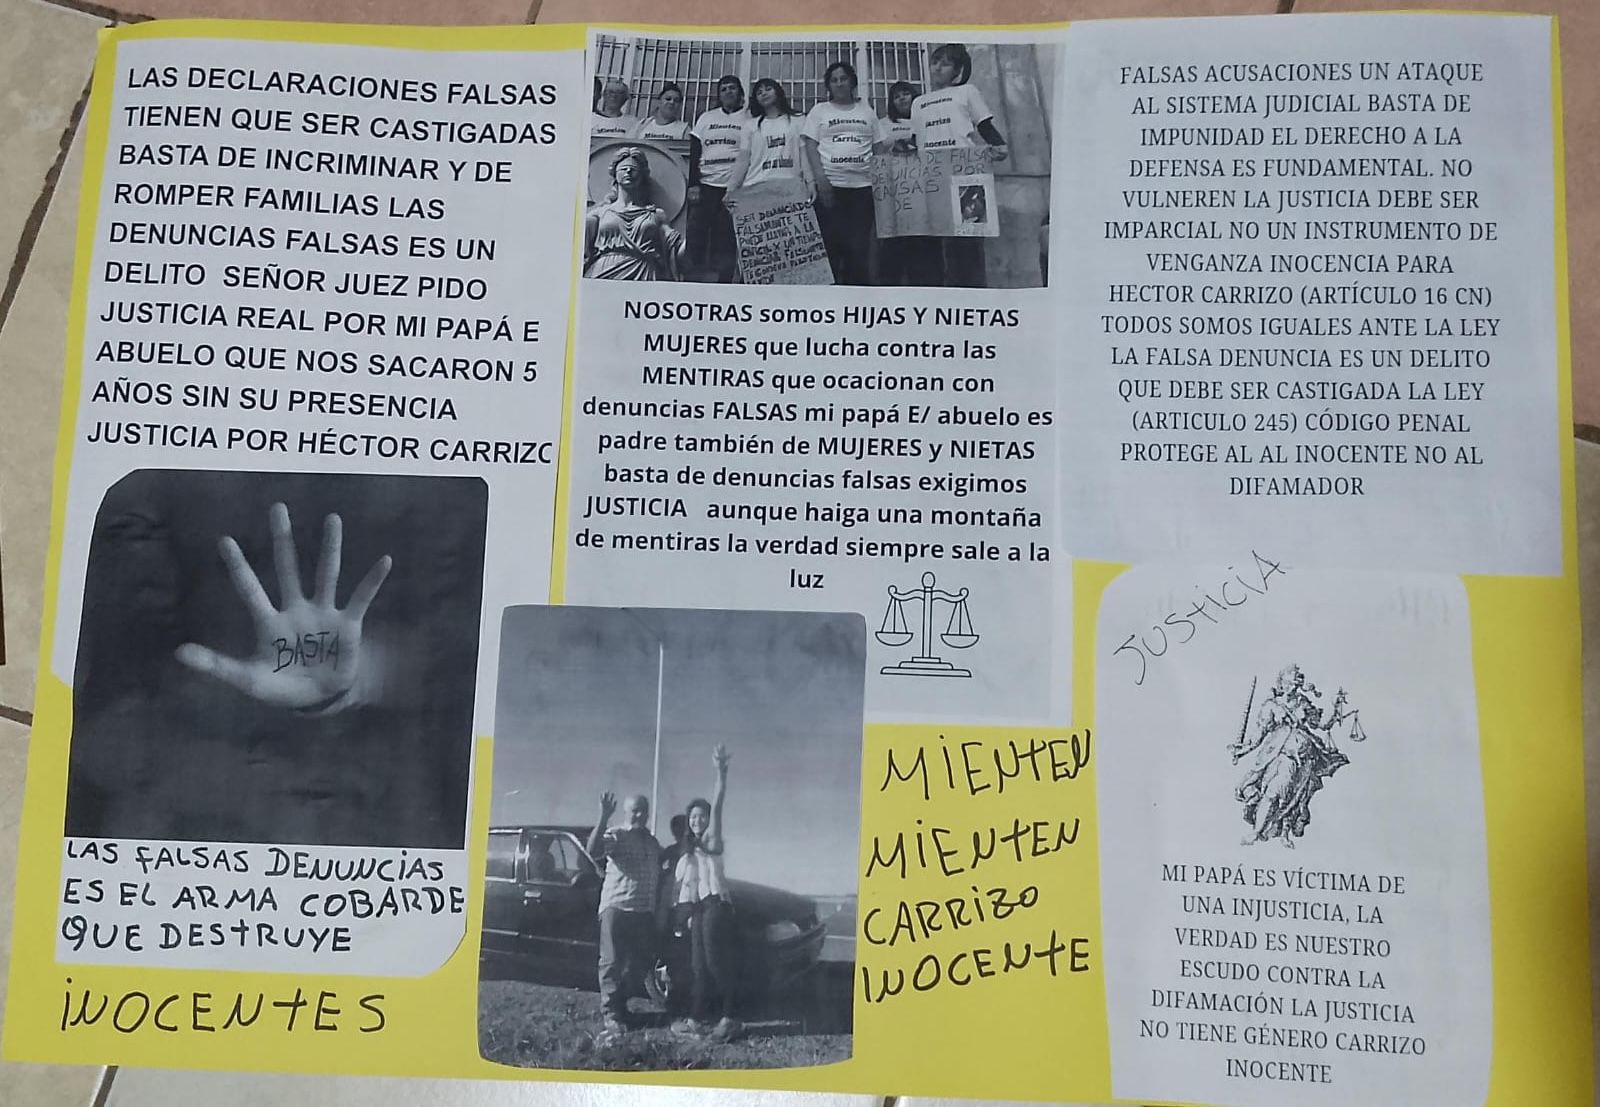 LAS DECLARACIONES FALSAS
TIENEN QUE SER CASTIGADAS
BASTA DE INCRIMINAR Y DE
ROMPER FAMILIAS LAS
DENUNCIAS FALSAS ES UN
DELITO SEÑOR JUEZ PIDO
JUSTICIA REAL POR MI PAPÁ E
ABUELO QUE NOS SACARON 5
AÑOS SIN SU PRESENCIA
JUSTICIA POR HÉCTOR CARRIZO
BASTA
LAS FALSAS DENUNCIAS
ES EL ARMA COBARDE
QUE DESTRUYE
INOCENTES
Mienten
Mienten
Carrizo
inocente
Mienten
Carrizo
inocente
Mienten
Carrizo
inocente
BASTA DE FALSAS
DENUNCIAS POR
CAUSAS
DE
SER DENUNCIADO
FALSAMENTE TE
NOSOTRAS somos HIJAS Y NIETAS
MUJERES que lucha contra las
MENTIRAS que ocacionan con
denuncias FALSAS mi papá E/ abuelo es
padre también de MUJERES y NIETAS
basta de denuncias falsas exigimos
JUSTICIA aunque haiga una montaña
de mentiras la verdad siempre sale a la
luz
MIENTEN
MIENTEN
CARRIZO
INOCENTE
FALSAS ACUSACIONES UN ATAQUE
AL SISTEMA JUDICIAL BASTA DE
IMPUNIDAD EL DERECHO A LA
DEFENSA ES FUNDAMENTAL. NO
VULNEREN LA JUSTICIA DEBE SER
IMPARCIAL NO UN INSTRUMENTO DE
VENGANZA INOCENCIA PARA
HECTOR CARRIZO (ARTÍCULO 16 CN)
TODOS SOMOS IGUALES ANTE LA LEY
LA FALSA DENUNCIA ES UN DELITO
QUE DEBE SER CASTIGADA LA LEY
(ARTICULO 245) CÓDIGO PENAL
PROTEGE AL AL INOCENTE NO AL
DIFAMADOR
JUSTICIA
MI PAPÁ ES VÍCTIMA DE
UNA INJUSTICIA, LA
VERDAD ES NUESTRO
ESCUDO CONTRA LA
DIFAMACIÓN LA JUSTICIA
NO TIENE GÉNERO CARRIZO
INOCENTE